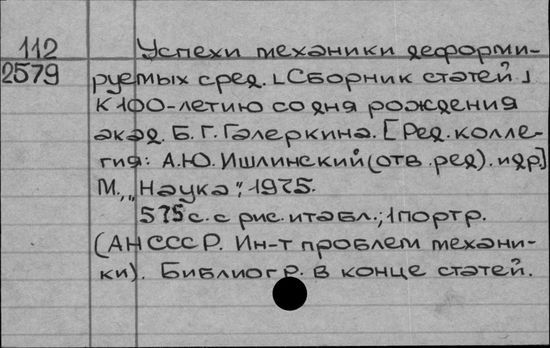 112
2579
Успехи механики деформи-
руемых сред. [Сборник статей]
К 100-летию со дня рождения
акад. Б. Г. Галеркина. [Ред. колле-
гия: А.Ю. Ишлинский (отв. ред). и др]
М., „Наука“, 1975.
575 с. с рис. и табл.; 1 портр.
(АН СССР. Ин-т проблем механи-
ки). Библиогр. в конце статей.